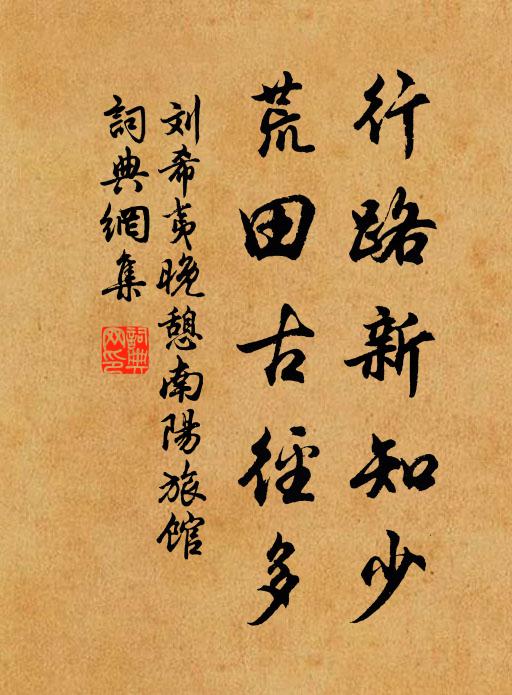 行路新知少
荒田古徑多
刘希夷晚憩南陽旅館
詞典網集
詞典網印